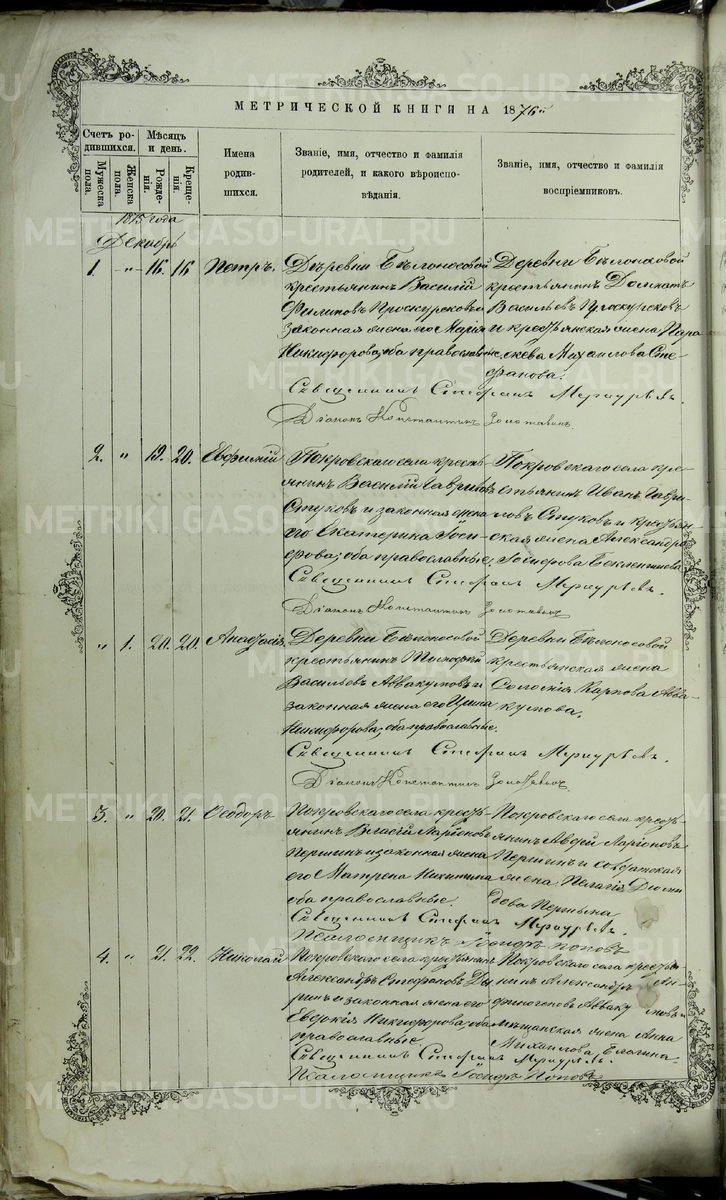 МЕТРИЧЕСКОЙ КНИГИ НА 1876й
Счетъ родившихся.
Мужеска пола.
Женска пола.
Мѣсяцъ и день.
Рожденія.
Крещенія.
Имена родившихся.
Званіе, имя, отчество и фамилія родителей, и какого вѣроисповѣданія.
Званіе, имя, отчество и фамилія воспріемниковъ.
1875 года
Декабрь
1. „ 16. 16 Петръ.
Деревни Бѣлоносовой
крестьянинъ Василій
Филиповъ Проскуряковъ и
законная жена его Марія
Никифорова; оба православные
Деревни Бѣлоносовой
крестьянинъ
Васильевъ Проскуряковъ
и крестьянская жена
Михаилова Сте-
фанова.
Священникъ Стефанъ Меркурьевъ.
Діаконъ Константинъ
2. „ 19. 20. Евфимій
Покровскаго села кресть-
янинъ Василій Гавриловъ
Стуковъ и законная жена
его Екатерина Іоси-
фова; оба православные;
Покровскаго села кре-
стьянинъ Иванъ Гаври-
ловъ Стуковъ и крестьян-
ская жена Александра
Іосифова
Священникъ Стефанъ Меркурьевъ.
Діаконъ Константинъ
„ 1. 20. 20. Анастасія
Деревни Бѣлоносовой
крестьянинъ Тимофей
Васильевъ Аввакумовъ и
законная жена его Ирина
Никифорова; оба православные.
Деревни Бѣлоносовой
крестьянская жена
Соломія Карпова Авва-
кумова.
Священникъ Стефанъ Меркурьевъ.
Діаконъ Константинъ
3. „ 20. 21. Ѳеодоръ
Покровскаго села кресть-
янинъ Власій Ларіоновъ
Першинъ и законная жена
его Матрена Никитина
оба православные.
Покровскаго села кресть-
янинъ Ларіоновъ
Першинъ и солдатская
жена Пелагія
Першина
Священникъ Стефанъ Меркурьевъ.
Псаломщикъ Іосифъ Поповъ
4. „ 21. 22. Николай
Покровскаго села крестьянинъ
Александръ Стефановъ
и законная жена его
Евдокія Никифорова оба
православные.
Покровскаго села крестья-
нинъ Александръ
Аввакумовъ и
мѣщанская жена Анна
Михаилова
Священникъ Стефанъ Меркурьевъ.
Псаломщикъ Іосифъ Поповъ
METRIKI.GASO-URAL.RU